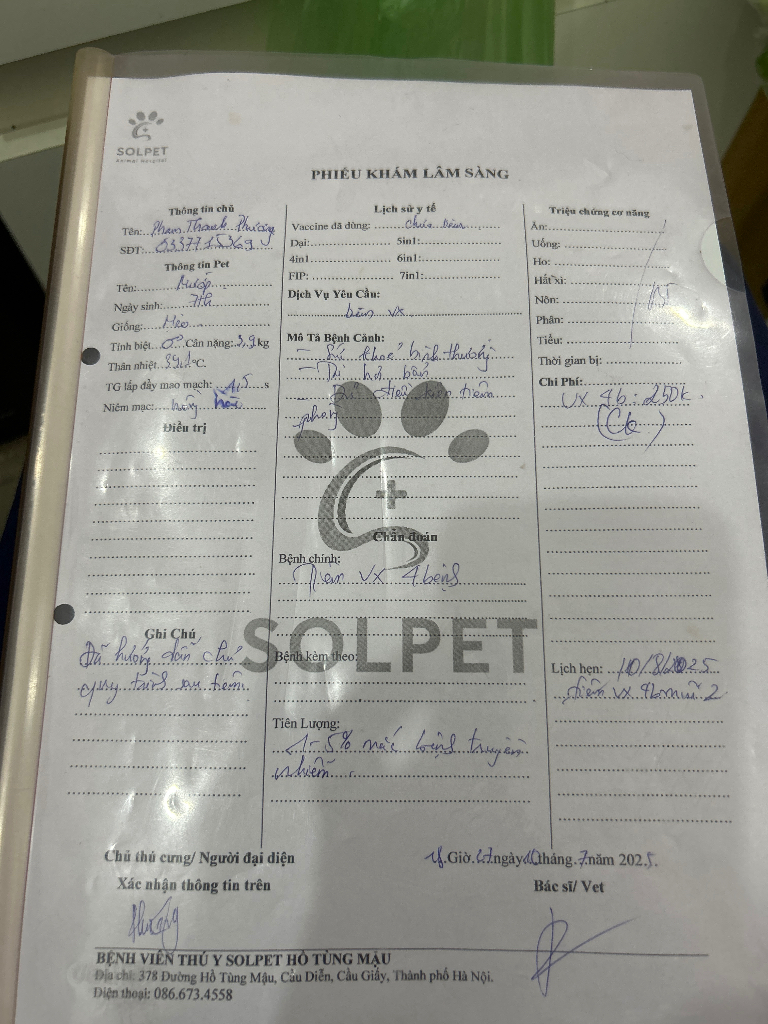 SOLPET
Animal hospital
PHIẾU KHÁM LÂM SÀNG
Thông tin chủ
Tên: Phạm Thanh Phương
SĐT:
Thông tin Pet
Tên: Mướp
Ngày sinh: 7th
Giống: Mèo
Tính biệt ♂ Cân nặng: 3,9 kg
Thân nhiệt: 39,1°c
TG lấp đầy mao mạch: 1,5 s
Niêm mạc: hồng hào
Điều trị
Ghi Chú
Đã hướng dẫn chủ
quy trình sau tiêm
Lịch sử y tế
Vaccine đã dùng: Chưa tiêm
Dại: 5in1:
4in1 6in1:
FIP: 7in1:
Dịch Vụ Yêu Cầu:
tiêm vx
Mô Tả Bệnh Cảnh:
- Sức khoẻ bình thường
- Tai hơi bẩn
- Đủ điều kiện tiêm
phòng
Chẩn đoán
Bệnh chính:
Tiêm vx 4 bệnh
SOLPET
Bệnh kèm theo:
Tiên Lượng:
1-5% mắc bệnh truyền
nhiễm
Triệu chứng cơ năng
Ăn:
Uống:
Ho:
Hắt xì:
Nôn: BT
Phân:
Tiểu:
Thời gian bị:
Chi Phí:
VX 4b: 250k
(Ck)
Lịch hẹn: 10/8/2025
tiêm vx mũi 2
Chủ thú cưng/ Người đại diện
Xác nhận thông tin trên
Phương
Giờ. ngày tháng.7 năm 2025.
Bác sĩ/ Vet
BỆNH VIỆN THÚ Y SOLPET HỒ TÙNG MẬU
Địa chỉ: 378 Đường Hồ Tùng Mậu, Cầu Diễn, Cầu Giấy, Thành phố Hà Nội.
Điện thoại: 086.673.4558